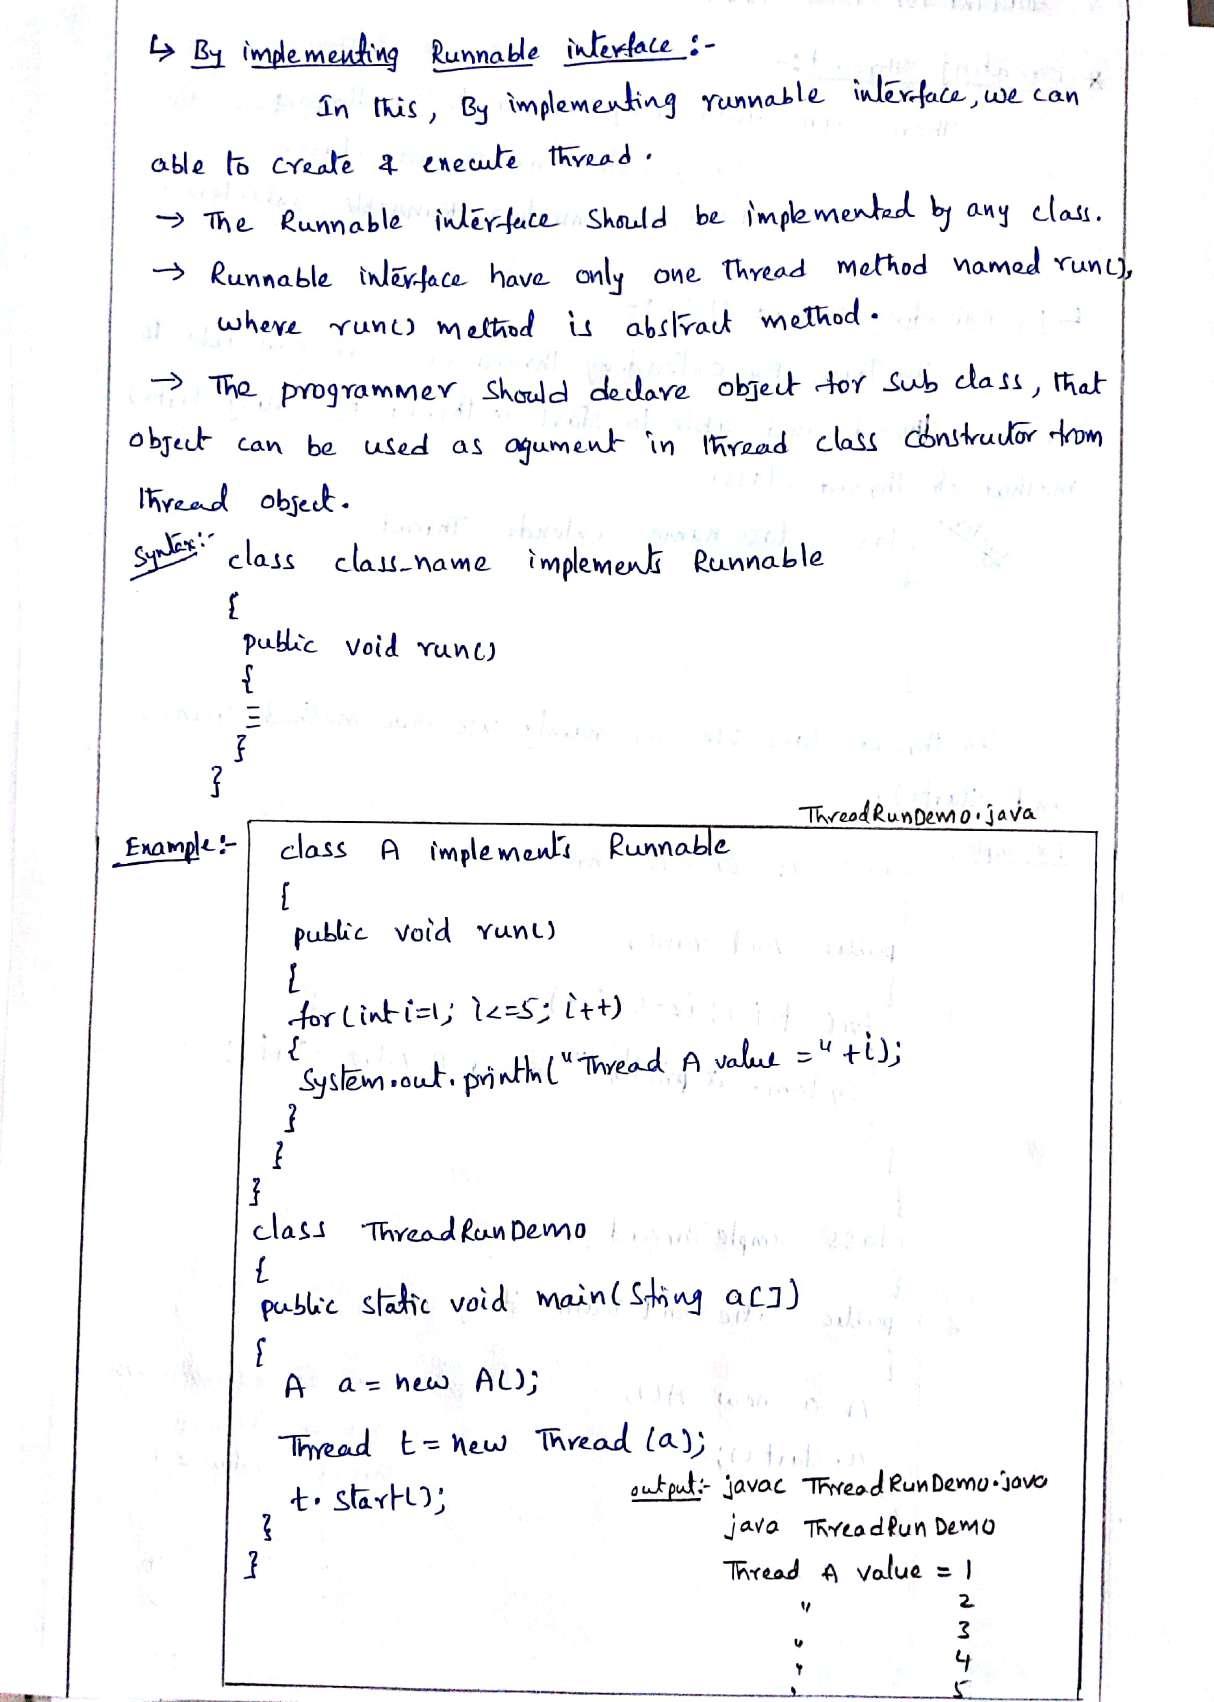 ↳ By implementing Runnable interface :-
In this, By implementing runnable interface, we can
able to create & execute thread.
→ The Runnable interface should be implemented by any class.
→ Runnable interface have only one Thread method named run(),
where run() method is abstract method.
→ The programmer should declare object for sub class, that
object can be used as agument in thread class constructor from
thread object.
Syntax:- class class_name implements Runnable
{
public void run()
{
≡
}
}
ThreadRunDemo.java
Example:- class A implements Runnable
{
public void run()
{
for(int i=1; i<=5; i++)
{
System.out.println("Thread A value ="+i);
}
}
}
class ThreadRunDemo
{
public static void main(String a[])
{
A a = new A();
Thread t = new Thread (a);
t. start();
}
}
output:- javac ThreadRunDemo.java
java ThreadRunDemo
Thread A value = 1
" 2
" 3
" 4
" 5